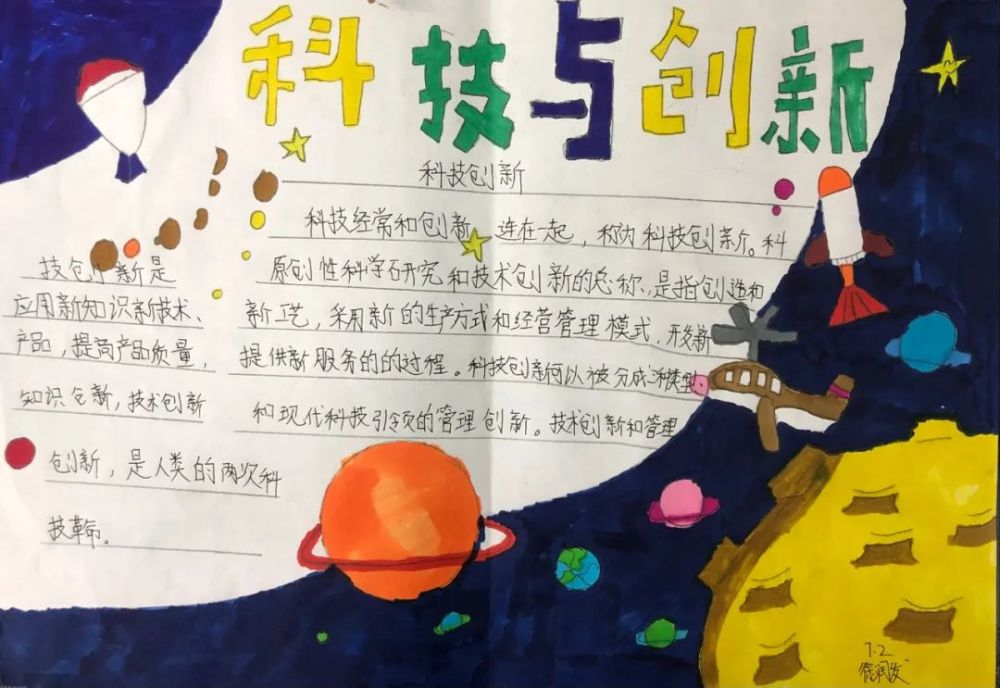 科技与创新
科技创新
科技经常和创新 连在一起，称为科技创新。科
技创新是 原创性科学研究和技术创新的总称，是指创造和
应用新知识新技术、新工艺，采用新的生产方式和经营管理模式，开发新
产品，提高产品质量，提供新服务的的过程。科技创新何以被分成 类型、
知识仓新，技术创新 和现代科技引领的管理创新。技术创新和管理
创新，是人类的两次科
技革命。
7.2